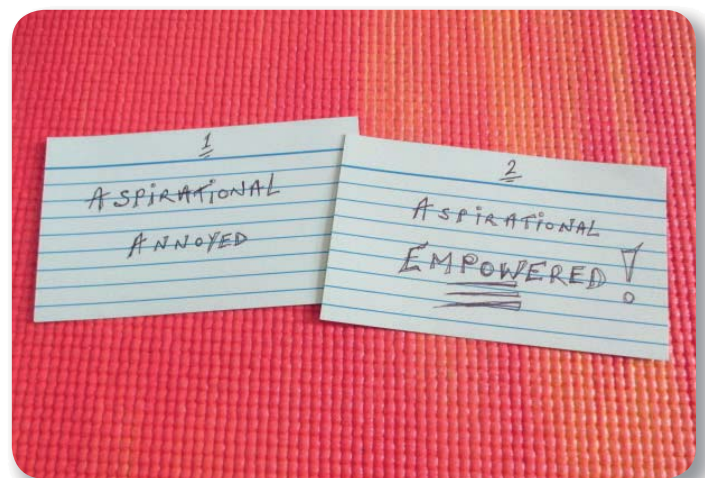 1
ASPiRATiONAL
ANNOYED
2
ASPiRATiONAL
EMPOWERED!